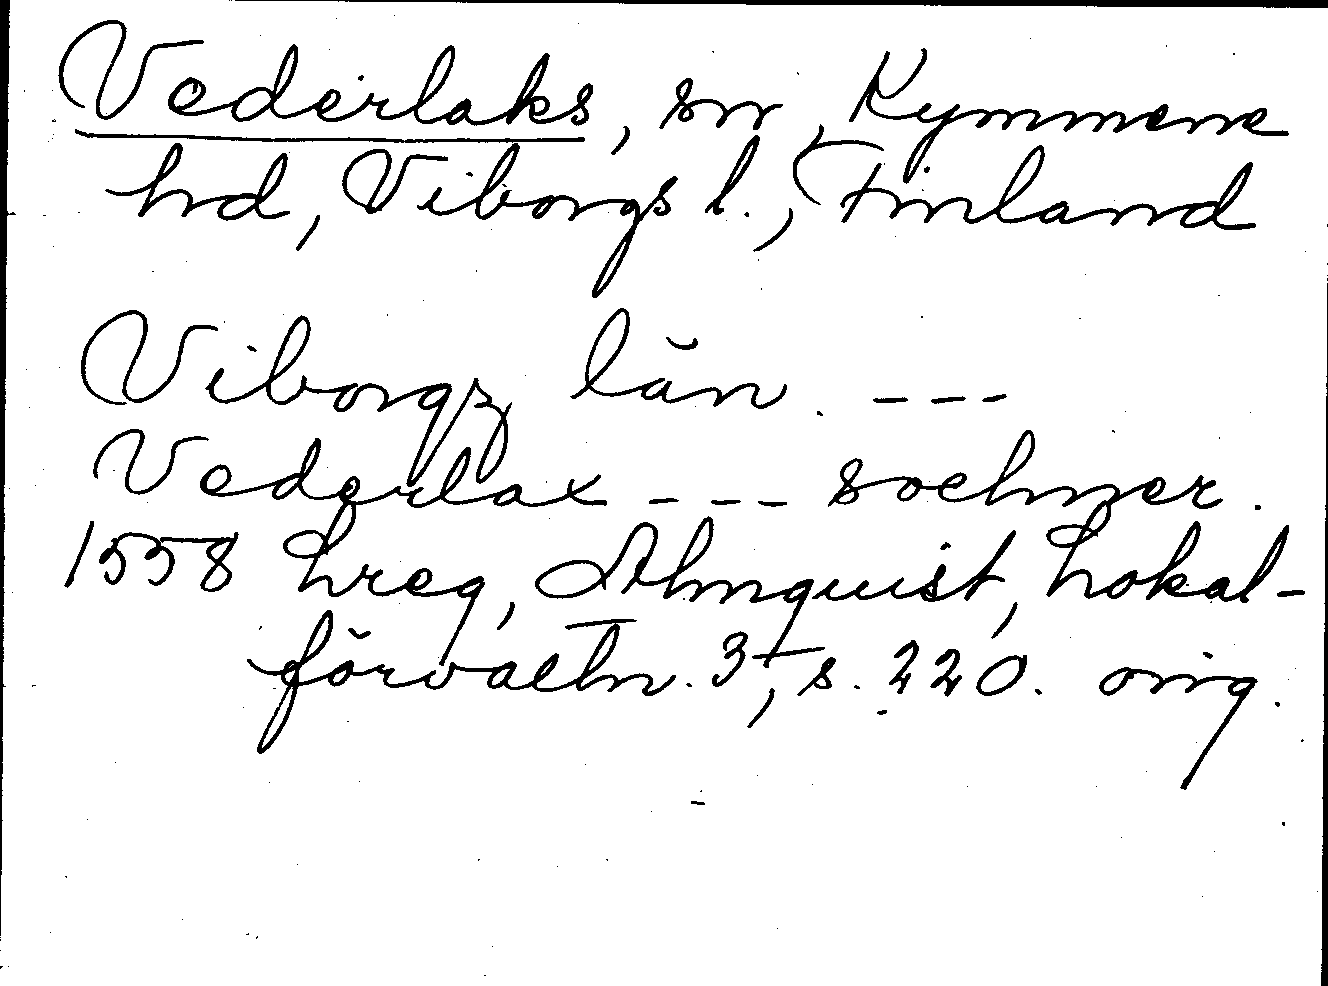 Vederlaks, sn, Kymmene
hd, Viborgs l., Finland
Viborgz län. ---
Vederlax --- sochner.
1558 Lreg, Almquist, Lokal-
förvaltn. 3, s. 220. orig.